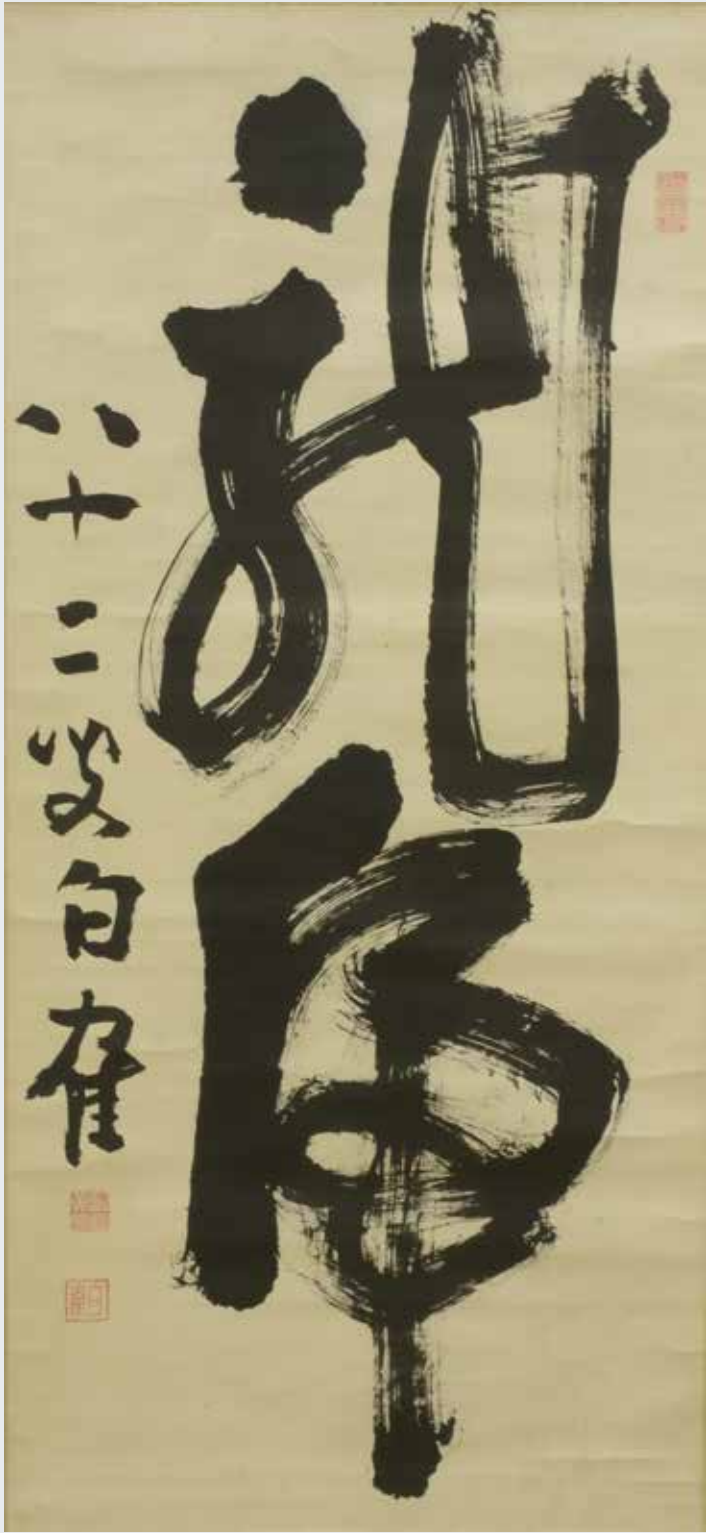 龍虎
八十二叟白隺